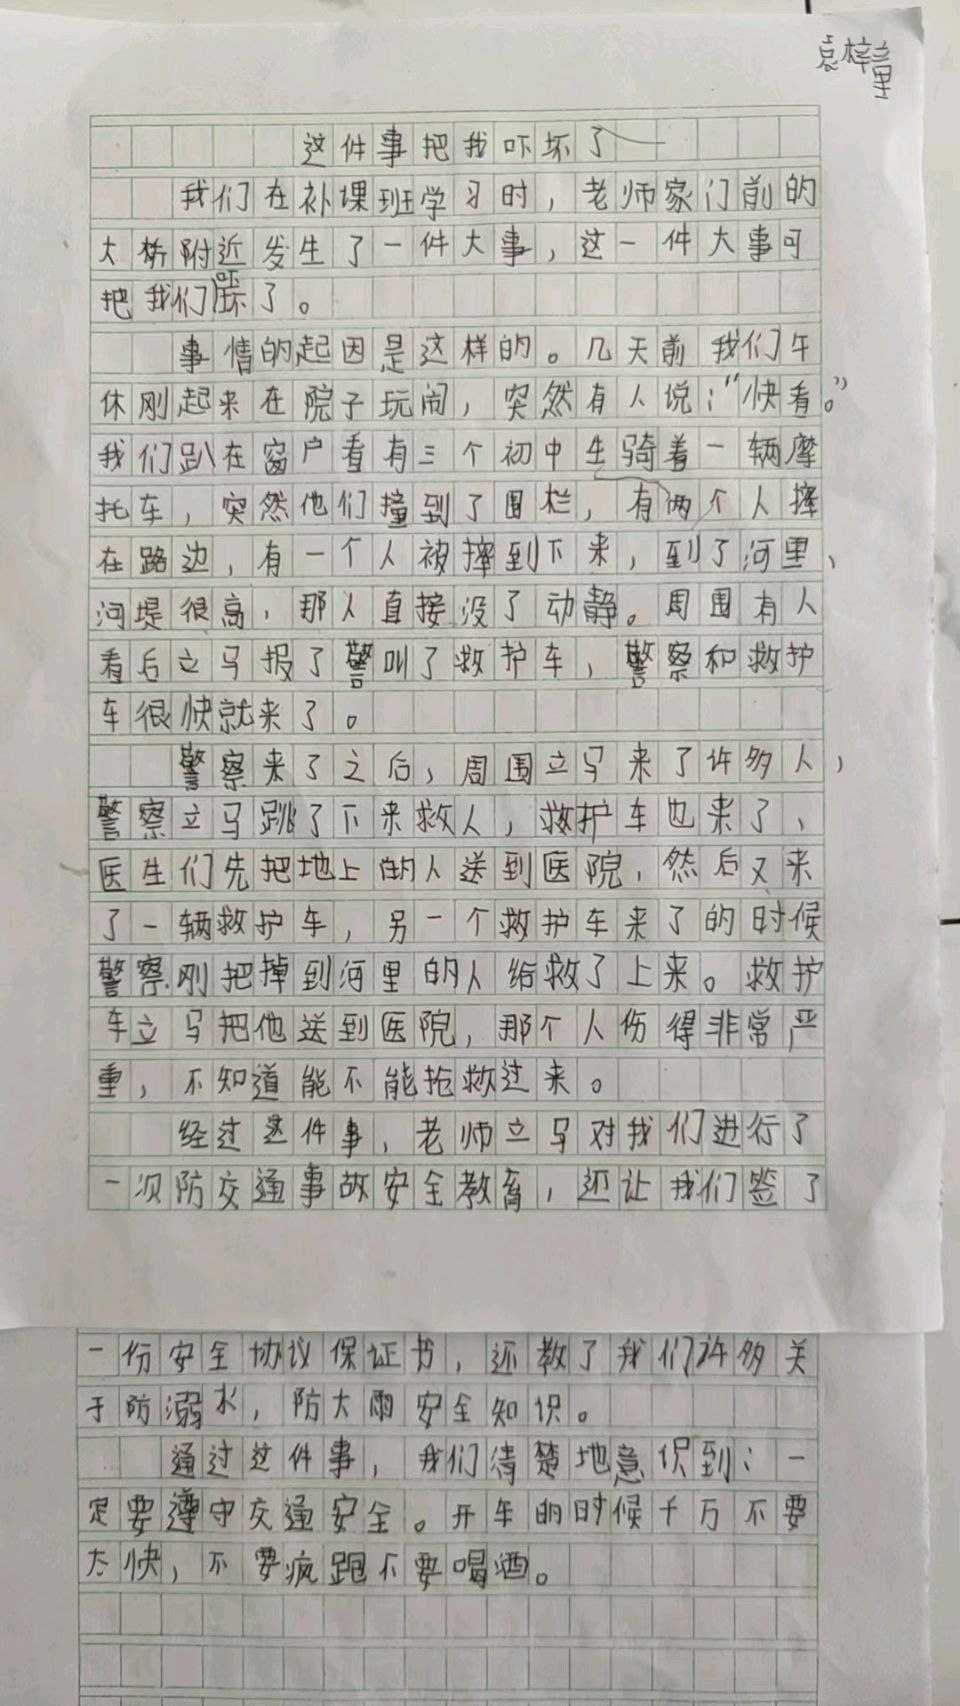 袁梓童
这件事把我吓坏了
我们在补课班学习时，老师家门前的
大桥附近发生了一件大事，这一件大事可
把我们吓坏了。
事情的起因是这样的。几天前我们午
休刚起来在院子玩闹，突然有人说：“快看。”
我们趴在窗户看有三个初中生骑着一辆摩
托车，突然他们撞到了围栏，有两个人摔
在路边，有一个人被摔到下来，到了河里，
河堤很高，那人直接没了动静。周围有人
看后立马报了警叫了救护车，警察和救护
车很快就来了。
警察来了之后，周围立马来了许多人，
警察立马跳了下来救人，救护车也来了，
医生们先把地上的人送到医院，然后又来
了一辆救护车，另一个救护车来了的时候
警察刚把掉到河里的人给救了上来。救护
车立马把他送到医院，那个人伤得非常严
重，不知道能不能抢救过来。
经过这件事，老师立马对我们进行了
一次防交通事故安全教育，还让我们签了
一份安全协议保证书，还教了我们许多关
于防溺水，防大雨安全知识。
通过这件事，我们清楚地意识到：一
定要遵守交通安全。开车的时候千万不要
太快，不要疯跑不要喝酒。